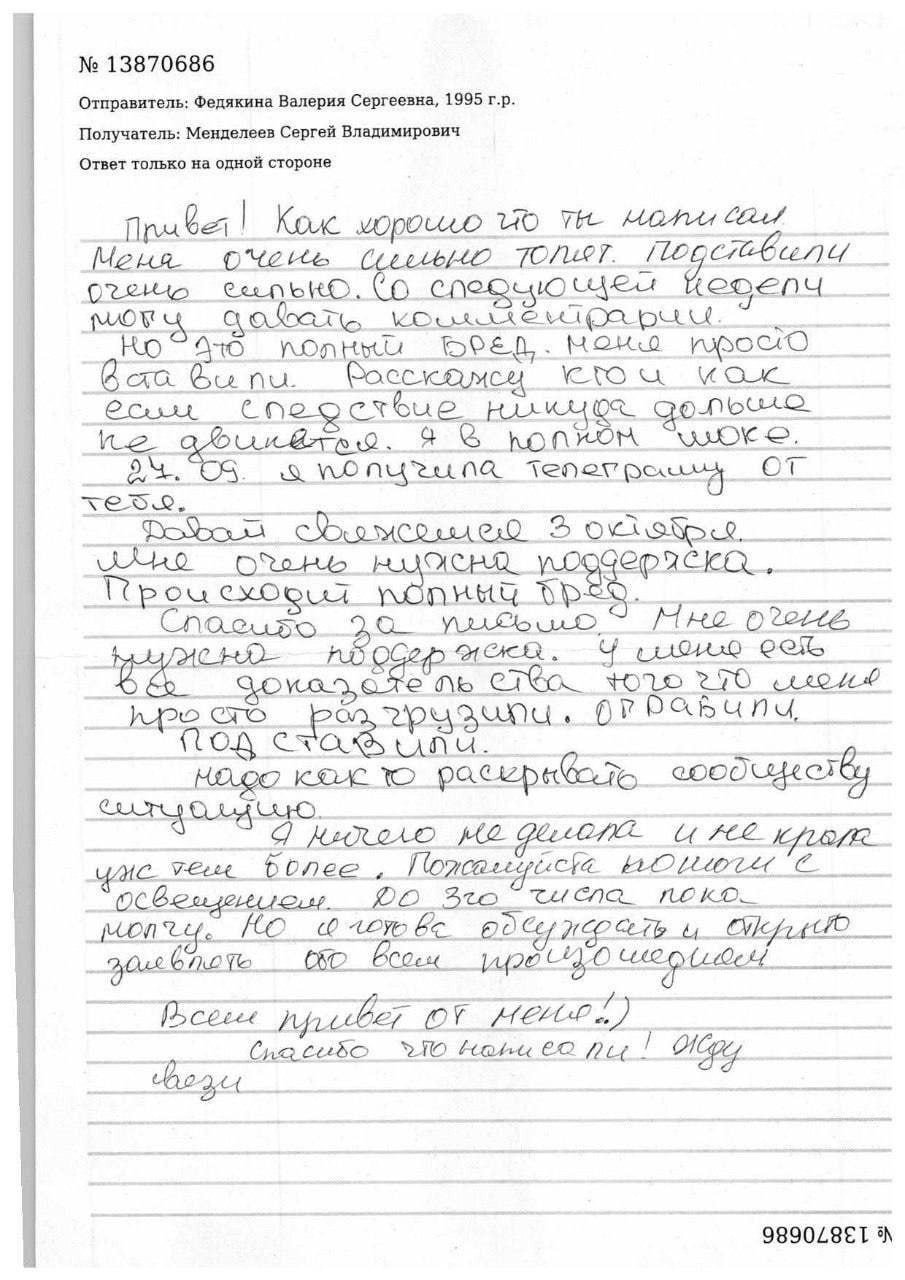 № 13870686
Отправитель: Федякина Валерия Сергеевна, 1995 г.р.
Получатель: Менделеев Сергей Владимирович
Ответ только на одной стороне
Привет! Как хорошо что ты написал
Меня очень сильно топят. Подставили
очень сильно. Со следующей недели
могу давать комментрарии.
Но это полный БРЕД. Меня просто
вставили. Расскажу кто и как
если следствие никуда дальше
не двинется. Я в полном шоке.
27.09. я получила телеграмму от
тебя.
Давай свяжемся 3 октября.
Мне очень нужна поддержка.
Происходит полный бред.
Спасибо за письмо. Мне очень
нужна поддержка. У меня есть
все доказательства того что меня
просто разгрузили. ограбили.
ПОДСТАВИЛИ.
Надо как то раскрывать сообществу
ситуацию.
Я ничего не делала и не крала
уж тем более. Пожалуйста помоги с
освещением. До 3го числа пока
молчу. Но я готова обсуждать и открыто
заявлять обо всем произошедшем
Всем привет от меня!!)
Спасибо что написали! Жду
связи
№ 13870686